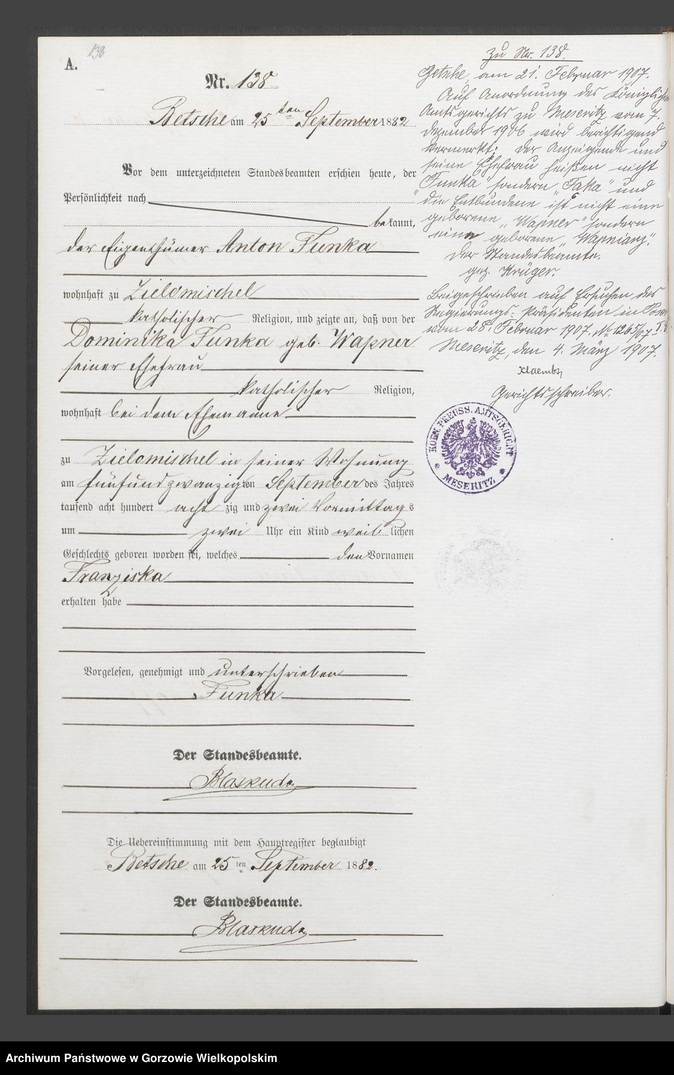 A.
138
Nr. 138
Betsche am 25 ten September 1882
Vor dem unterzeichneten Standesbeamten erschien heute, der
Persönlichkeit nach
bekannt,
der Eigenthümer Anton Funka
wohnhaft zu Zielomischel
katholischer Religion, und zeigte an, daß von der
Dominika Funka geb. Wapner
seiner Ehefrau
katholischer Religion,
wohnhaft bei dem Ehemanne
zu Zielomischel in seiner Wohnung
am fünfundzwanzigten September des Jahres
tausend acht hundert achtzig und zwei Vormittags
um zwei Uhr ein Kind weiblichen
Geschlechts geboren worden sei, welches den Vornamen
Franziska
erhalten habe
Vorgelesen, genehmigt und unterschrieben
Funka
Der Standesbeamte.
Blaskuda
Die Uebereinstimmung mit dem Hauptregister beglaubigt
Betsche am 25 ten September 1882.
Der Standesbeamte.
Blaskuda
Zu Nr. 138.
Betsche, am 21. Februar 1907.
Auf Anordnung des Königlichen
Amtsgerichts zu Meseritz vom 7.
Dezember 1906 wird berichtigend
vermerkt: der Anzeigende und
seine Ehefrau heißen nicht
"Funka" sondern "Faka" und
die Entbundene ist nicht eine
geborene "Wapner" sondern
eine geborene "Wapnianz".
Der Standesbeamte.
gez. Krüger.
Beigeschrieben auf Ersuchen des
Regierungs-Präsidenten in Posen
vom 28. Februar 1907. No
Meseritz, den 4. März 1907.
Gerichtsschreiber.
KOEN. PREUSS. AMTSGERICHT
* MESERITZ *
Archiwum Państwowe w Gorzowie Wielkopolskim